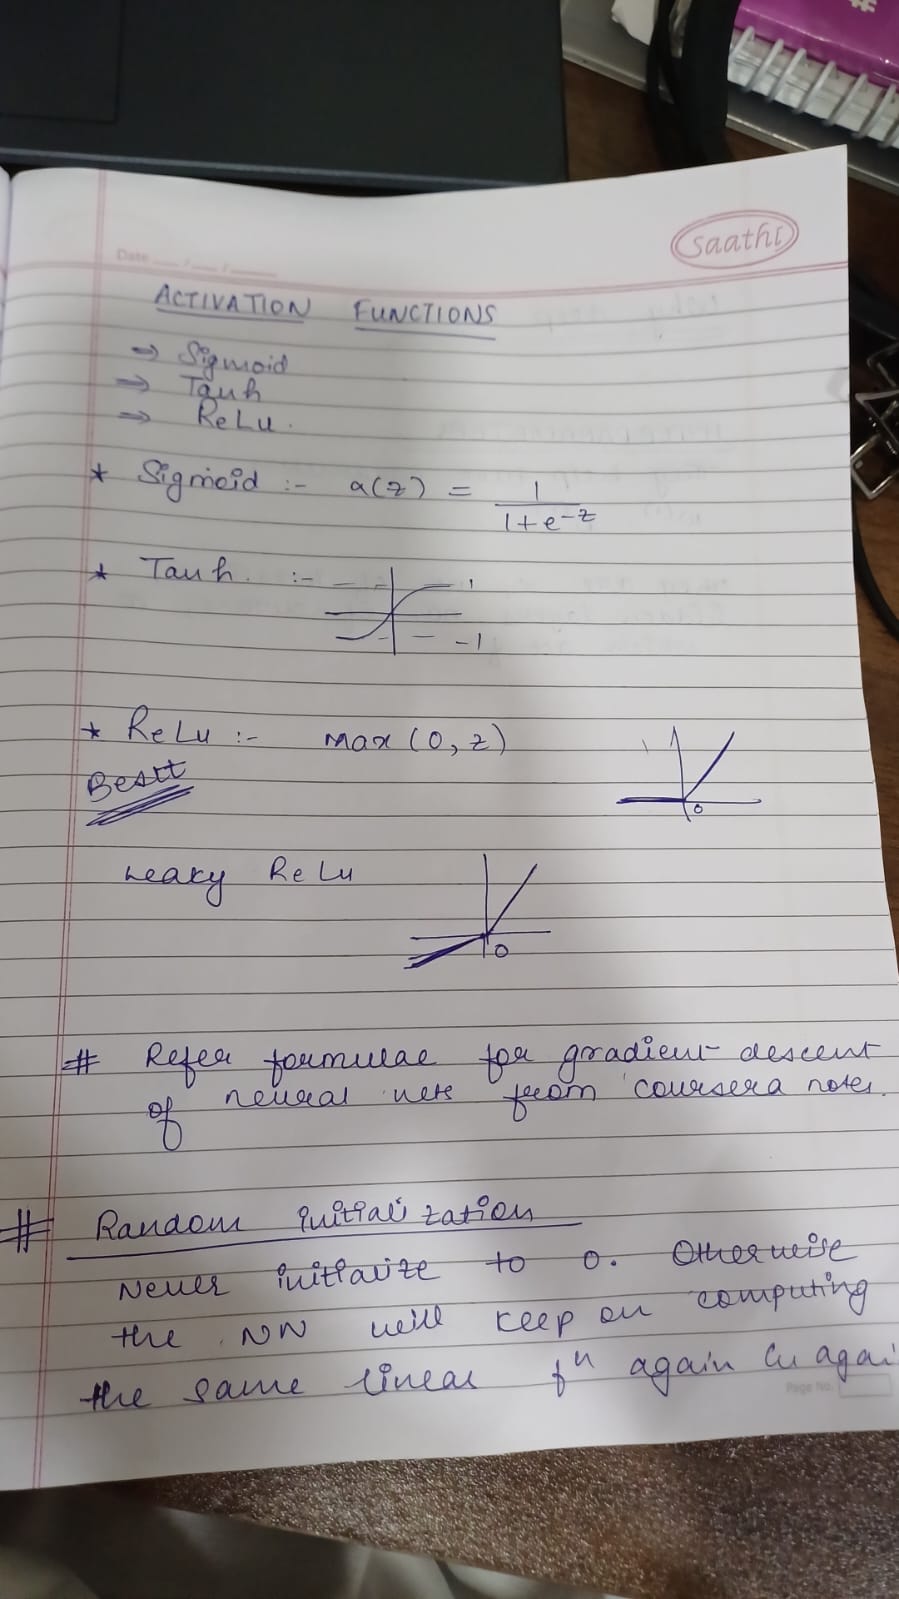 saathi
Date
ACTIVATION FUNCTIONS
⇒ Sigmoid
⇒ Tanh
⇒ ReLu.
* Sigmoid :- a(z) = 1 / 1+e^-z
* Tanh :- 1
-1
* ReLu :- max (0, z)
0
Bestt
Leaky ReLu
0
# Refer formulae for gradient descent
of neural nets from coursera notes.
# Random initialization
Never initialize to 0. Otherwise
the NN will keep on computing
the same linear fn again &
Page No.